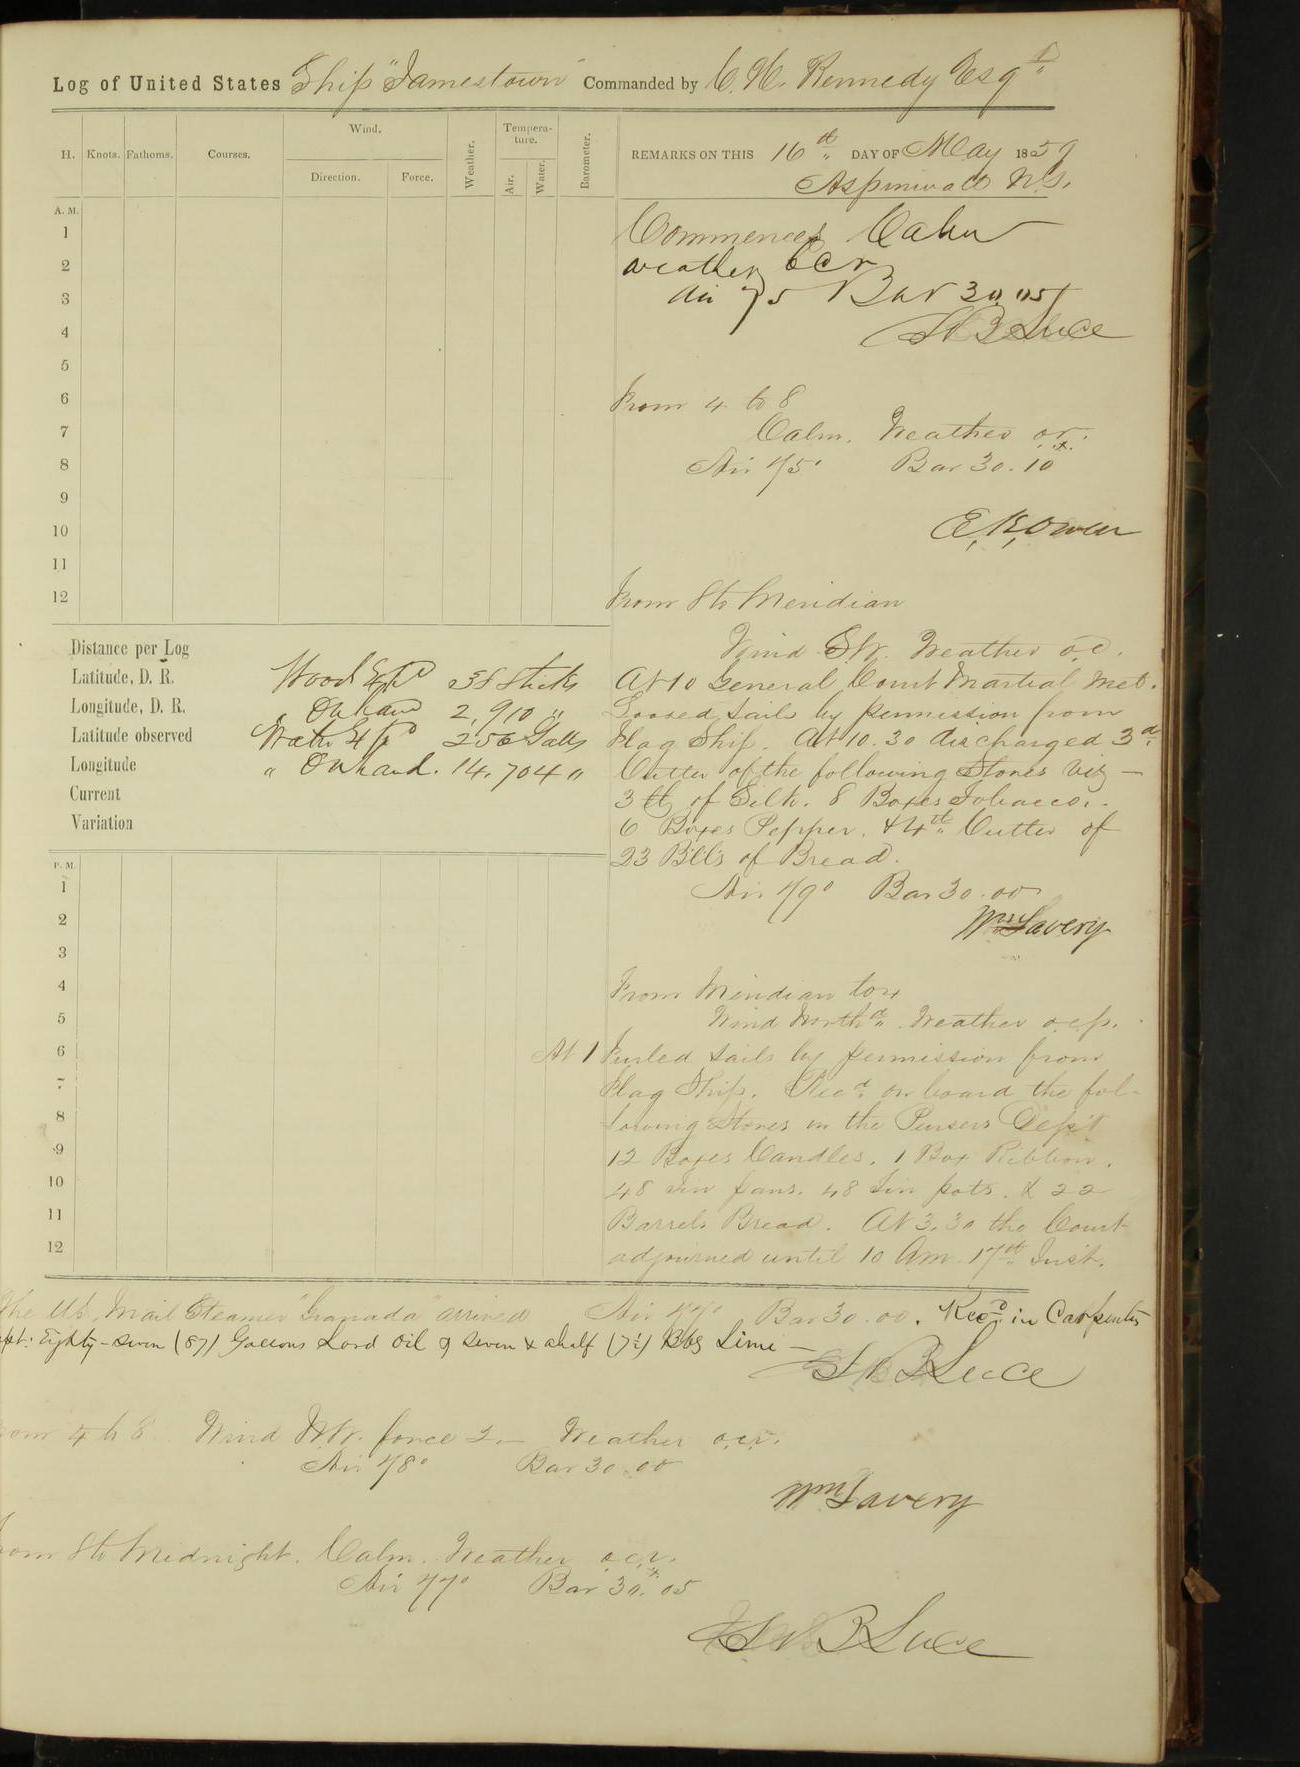 Log of United States Ship "Jamestown" Commanded by C. H. Kennedy Esqr
H. Knots. Fathoms. Courses. Wind. Direction. Force. Weather. Temperature. Air. Water. Barometer.
REMARKS ON THIS 16th DAY OF May 1859
Aspinwall N.G.
A. M.
1
2
3
4
5
6
7
8
9
10
11
12
Commences Calm
weather bcr
Air 75 Bar 30.05
S B Luce
From 4 to 8
Calm. Weather or.
Air 75° Bar 30.10
E. K. Owen
From 8 to Meridian
Wind SW. Weather oc.
At 10 General Court Martial met.
Loosed sails by permission from
Flag Ship. At 10.30 discharged 3d
Cutter of the following Stores viz —
3 lb of Silk. 8 Boxes Tobacco.
6 Boxes Pepper. & 4th Cutter of
23 Bbls of Bread.
Air 79° Bar 30.00
Wm Savery
Distance per Log
Latitude, D. R.
Longitude, D. R.
Latitude observed
Longitude
Current
Variation
Wood Expd 38 Sticks
" On hand 2,910 "
Water Expd 256 Galls
" On hand. 14,704 "
P. M.
1
2
3
4
5
6
7
8
9
10
11
12
From Meridian to 4
Wind Northd. Weather ocp.
At 1 Furled sails by permission from
Flag Ship. Recd on board the fol-
lowing Stores in the Pursers Dept
12 Boxes Candles. 1 Box Ribbon.
48 tin pans. 48 tin pots. & 22
Barrels Bread. At 3.30 the Court
adjourned until 10 Am. 17th Inst.
The US. Mail Steamer "Granada" arrived Air 77° Bar 30.00. Recd in Carpenters
Dpt: Eighty-seven (87) Gallons Lard Oil & seven & a half (7½) Bbs Lime —
S B Luce
From 4 to 8 Wind NW. force 2. — Weather ocr.
Air 78° Bar 30.00
Wm Savery
From 8 to Midnight. Calm. Weather ocr.
Air 77° Bar 30.05
S B Luce